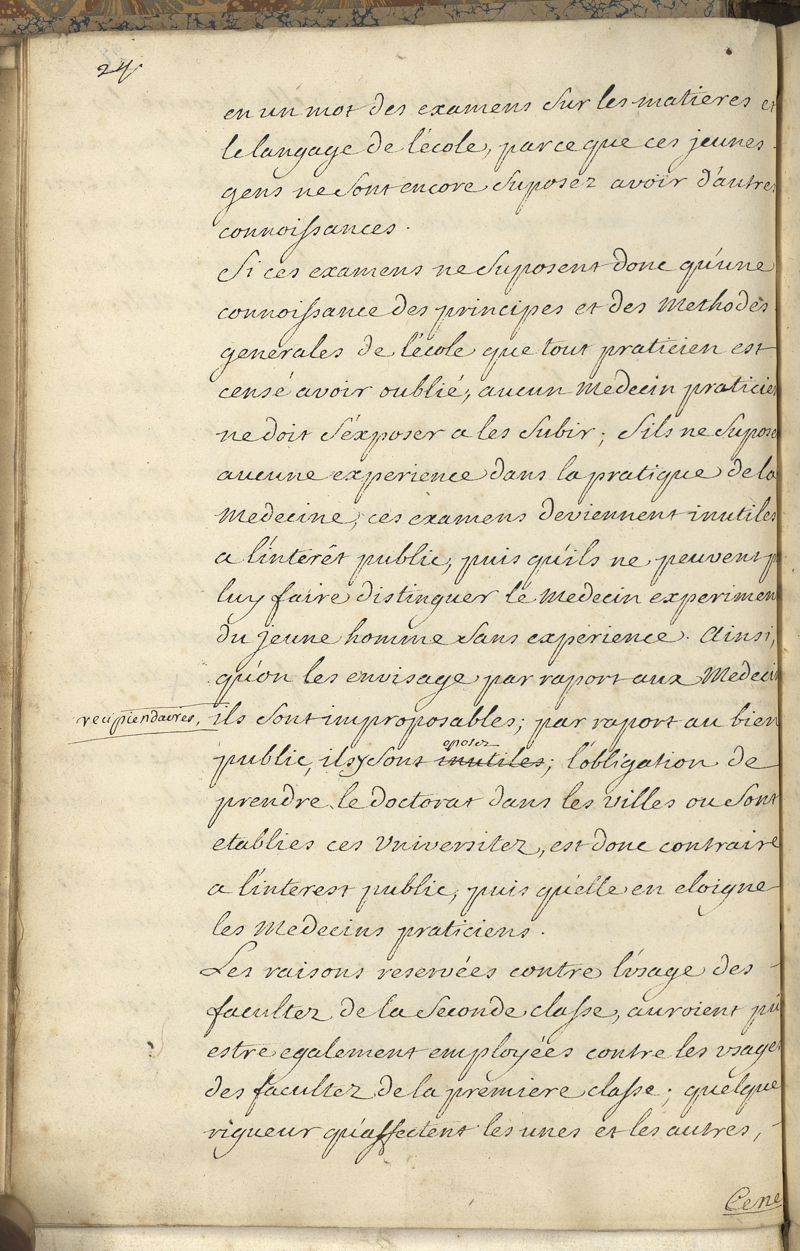 24
en un mot des examens sur les matieres et
le langage de l'école, parce que ces jeunes
gens ne sont encore suposez avoir d'autres
connoissances.
Si ces examens ne suposent donc qu'une
connoissance des principes et des Methodes
generales de l'école que tout praticien est
censé avoir oublié, aucun Medecin praticien
ne doit s'éxposer a les subir; s'ils ne supose
aucune experience dans la pratique de la
Medecine, ces examens deviennent inutiles
a l'intérêt public, puis qu'ils ne peuvent p
luy faire distinguer le Medecin experimen
du jeune homme sans experience. Ainsi,
qu'on les envisage par raport aux Medecin
recipiendaires, ils sont improposables; par raport au bien
oposez
public, ils y sont inutiles; l'obligation de
prendre le doctorat dans les villes ou sont
etablies ces Universitez, est donc contraire
a l'interest public, puis qu'elle en eloigne
les Medecins praticiens.
Les raisons reservées contre l'usage des
facultez de la seconde classe, auroient pû
estre egalement employées contre les usages
des facultez de la premiere classe; quelque
rigueur qu'affectent les unes et les autres,
Cene